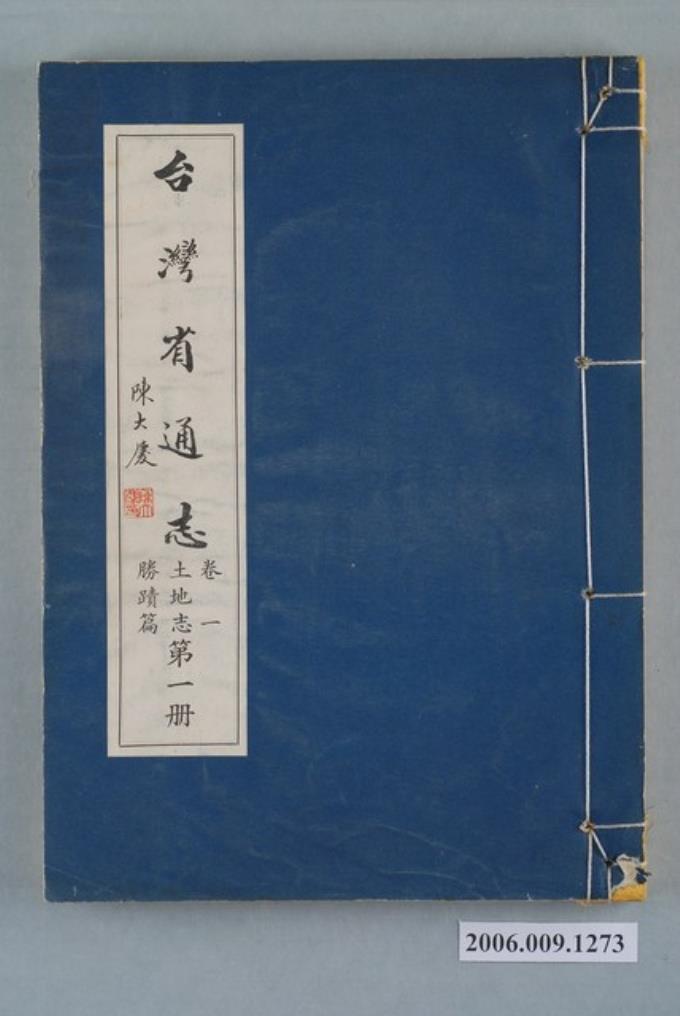 台灣省通志
卷一
土地志
勝蹟篇
第一册
陳大慶
2006.009.1273